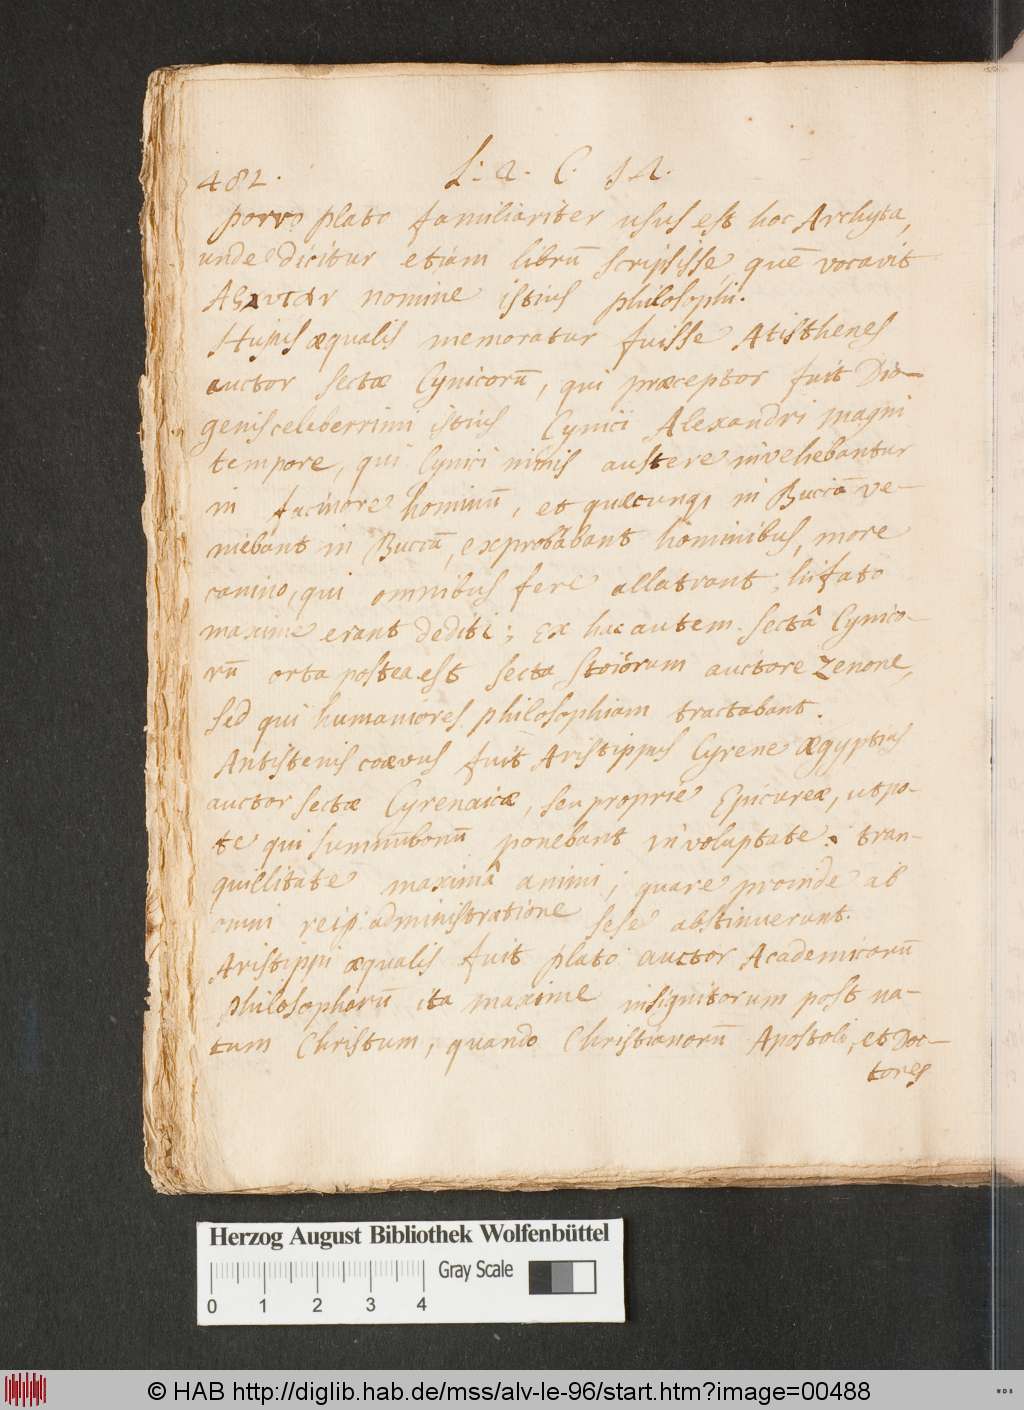 482. L: 2. C. 12.
porro Plato familiariter usus est hoc Archyta,
unde dicitur etiam librū scripsisse quē vocavit
nomine istius philosophi.
Hujus æqualis memoratur fuisse Atisthenes
auctor sectæ Cynicorū, qui præceptor fuit Dio-
genis celeberrimi istius Cynici Alexandri magni
tempore, qui Cynici nimis austere invehebantur
in facinore hominū, et quæcunq, in Buccā ve-
niebant in Buccā, exprobabant hominibus, more
canino, qui omnibus fere allatrant,
maxime erant dediti; Ex hac autem sectâ Cynico-
rū orta postea est secta Stoicorum auctore Zenone,
sed qui humaniores philosophiam tractabant.
Antistenis coævus fuit Aristippus Cyrene Ægyptius
auctor sectæ Cyrenaicæ, seu proprie Epicureæ, utpo-
te qui sum̄umbonū ponebant in voluptate. tran-
quillitate maximâ animi; quare proinde ab
omni reip: administratione sese abstinuerunt.
Aristippi æqualis fuit plato auctor Academicorū
philosophorū ita maxime insignitorum post na-
tum Christum, quando Christianorū Apostoli, et Doc-
tores
Herzog August Bibliothek Wolfenbüttel
Gray Scale
0 1 2 3 4
© HAB http://diglib.hab.de/mss/alv-le-96/start.htm?image=00488